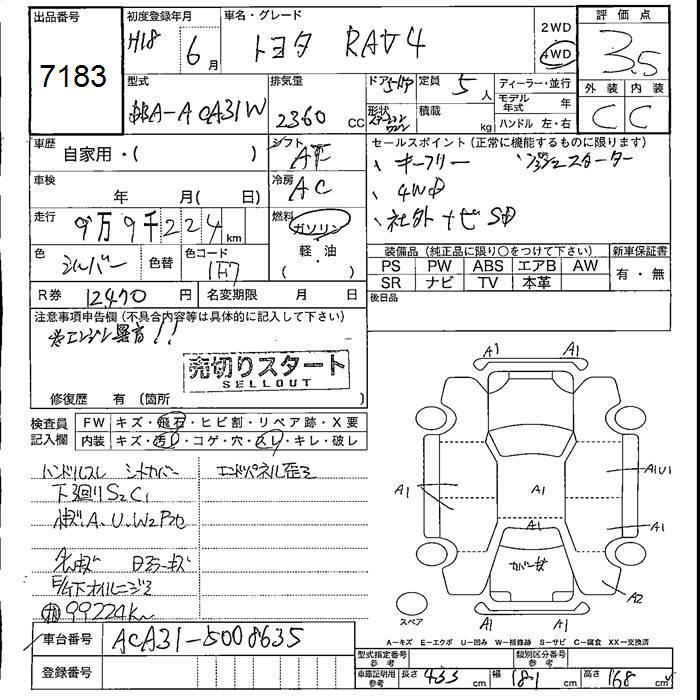 出品番号 初度登録年月 車名・グレード 2WD 評価点
7183 H18 6月 トヨタ RAV4 4WD 3.5
型式 排気量 ドア 定員 ディーラー・並行 外装 内装
DBA-ACA31W 2360 cc 5 5人 モデル年式 年 C C
形状 積載 kg ハンドル 左・右
車歴 シフト セールスポイント (正常に機能するものに限ります)
自家用・( ) AT 、キーフリー 、プッシュスターター
車検 冷房 、4WD
年 月( 日) AC 、社外ナビSD
走行 燃料
9万9千224km ガソリン
色 色替 色コード (軽・油)
シルバー 1F7
装備品 (純正品に限り○をつけて下さい) 新車保証書
PS PW ABS エアB AW 有・無
SR ナビ TV 本革
R券 12470円 名変期限 月 日 後日品
注意事項申告欄(不具合内容等は具体的に記入して下さい)
※エンジン異音!!
売切りスタート
SELLOUT
修復歴 有(箇所 )
検査員 FW キズ・飛石・ヒビ割・リペア跡・X要
記入欄 内装 キズ・汚れ・コゲ・穴・スレ・キレ・破レ
ハンドルスレ シートカバー エンドパネル歪ミ
下廻りS2C1
小キズA、U、W2
E/G下オイルニジミ
99224km
A1 A1
A1 A1 A1U1
A1 A1
カバーキズ
A2
A1 A1
スペア
A-キズ E-エクボ U-凹み W-補修跡 S-サビ C-腐食 XX-交換済
車台番号 ACA31-5008635
型式指定番号 参考 類別区分番号 参考
登録番号 車庫証明用 参考 長さ 455cm 幅 181cm 高さ 168cm